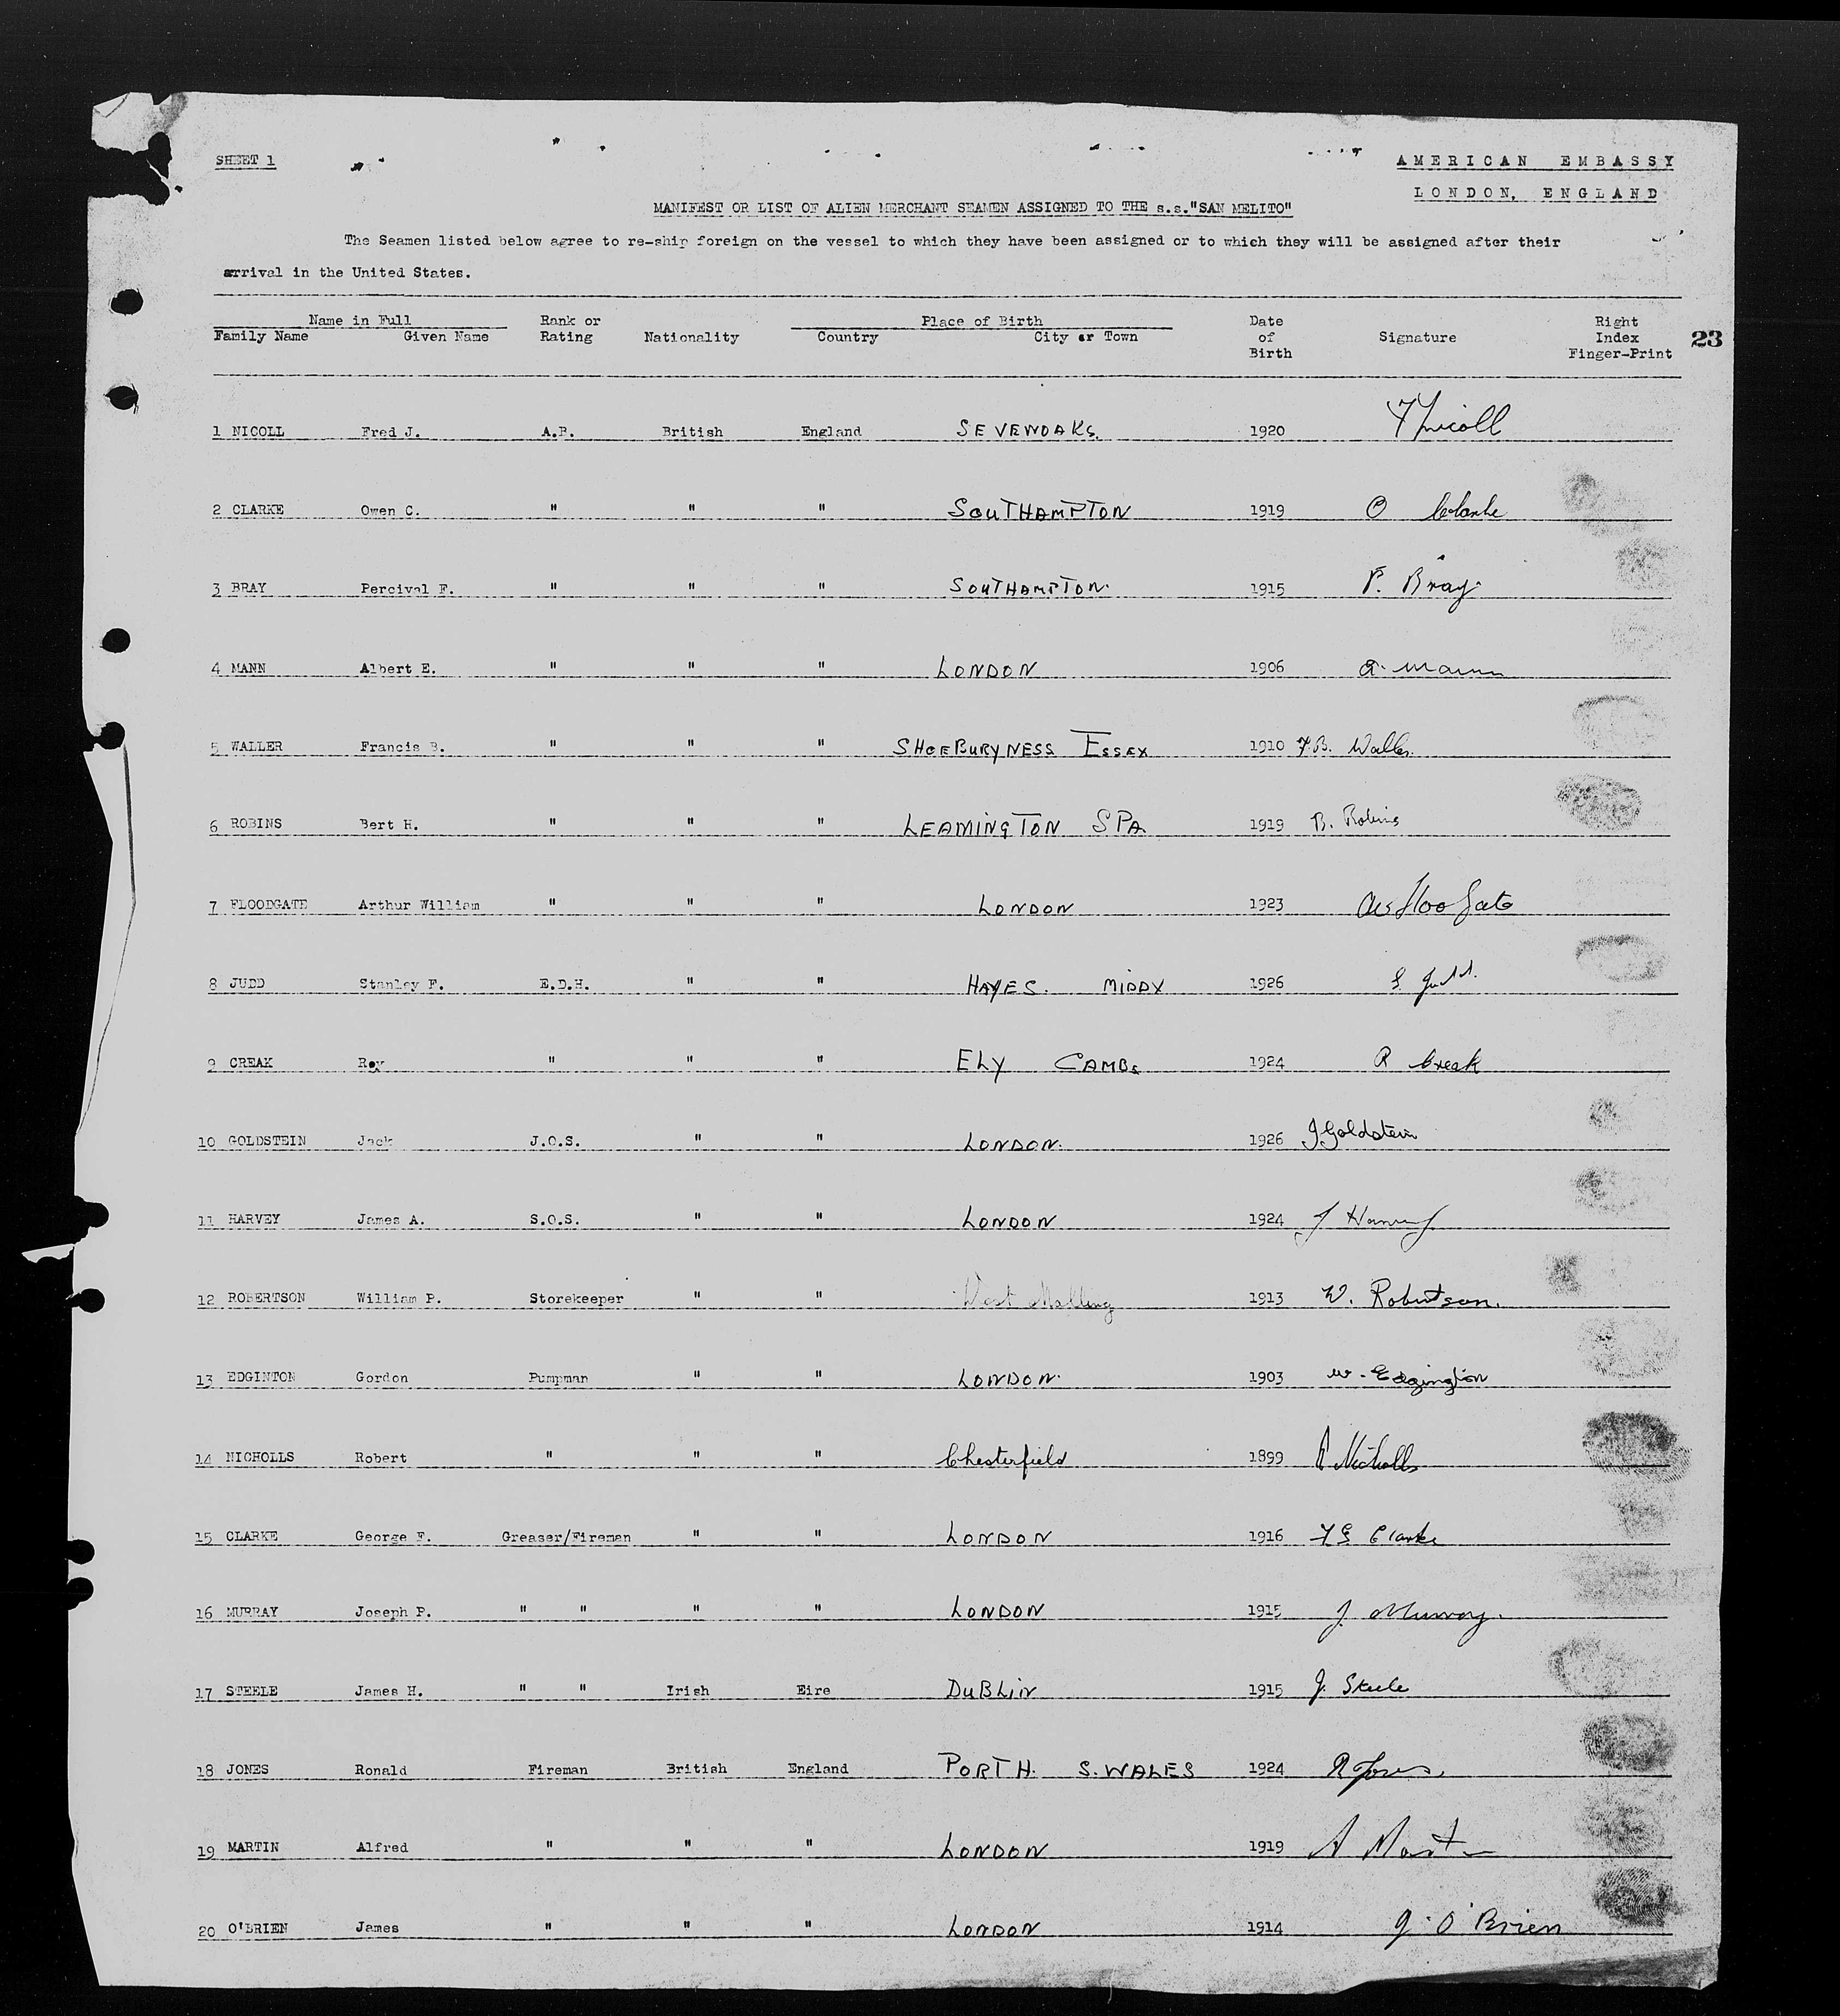 SHEET 1
AMERICAN EMBASSY
LONDON, ENGLAND
MANIFEST OR LIST OF ALIEN MERCHANT SEAMEN ASSIGNED TO THE s.s."SAN MELITO"
The Seamen listed below agree to re-ship foreign on the vessel to which they have been assigned or to which they will be assigned after their
arrival in the United States.
Name in Full Rank or Place of Birth Date Right
Family Name Given Name Rating Nationality Country City or Town of Signature Index 23
Birth Finger-Print
1 NICOLL Fred J. A.B. British England SEVENOAKS. 1920 F Nicoll
2 CLARKE Owen C. " " " SOUTHAMPTON 1919 O Clarke
3 BRAY Percival F. " " " SOUTHAMPTON. 1915 P. Bray
4 MANN Albert E. " " " LONDON 1906 A. Mann
5 WALLER Francis B. " " " SHOEBURYNESS ESSEX 1910 F.B. Waller.
6 ROBINS Bert H. " " " LEAMINGTON SPA 1919 B. Robins
7 FLOODGATE Arthur William " " " LONDON 1923 AW Floogate
8 JUDD Stanley F. E.D.H. " " HAYES. MIDDX 1926 S Judd.
9 CREAK Roy " " " ELY CAMBS 1924 R Creak
10 GOLDSTEIN Jack J.O.S. " " LONDON. 1926 J Goldstein
11 HARVEY James A. S.O.S. " " LONDON 1924 J Harvey
12 ROBERTSON William P. Storekeeper " " West Malling 1913 W. Robertson.
13 EDGINTON Gordon Pumpman " " LONDON. 1903 W. Edgington
14 NICHOLLS Robert " " " Chesterfield 1899 R Nicholls
15 CLARKE George F. Greaser/Fireman " " LONDON 1916 F G Clarke
16 MURRAY Joseph P. " " " " LONDON 1915 J. Murray.
17 STEELE James H. " " Irish Eire DUBLIN 1915 J. Steele
18 JONES Ronald Fireman British England PORTH. S. WALES 1924 R Jones.
19 MARTIN Alfred " " " LONDON 1919 A Martin
20 O'BRIEN James " " " LONDON 1914 J. O'Brien